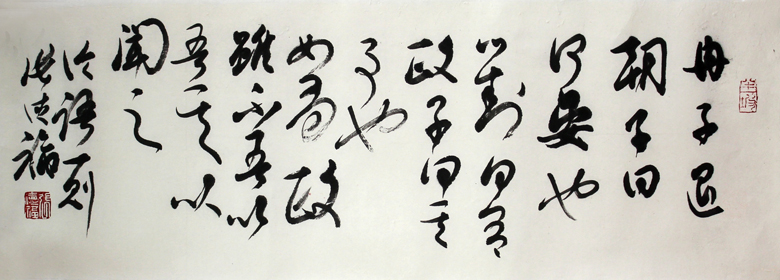 冉子退
朝子曰
何晏也
對曰有
政子曰其
事也
如有政
雖不吾以
吾其以
聞之
論語一則